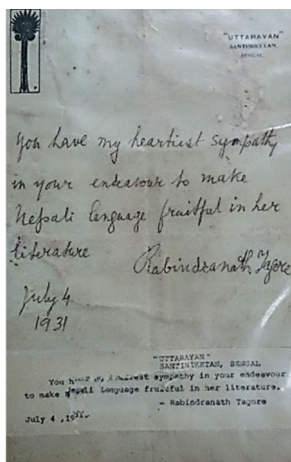 "UTTARAYAN"
SANTINIKETAN,
BENGAL.
You have my heartiest sympathy
in your endeavour to make
Nepali language fruitful in her
literature
Rabindranath Tagore
July 4
1931
"UTTARAYAN"
SANTINIKETAN, BENGAL
You sympathy in your endeavour
to make Nepali Language fruitful in her literature.
- Rabindranath Tagore
July 4,